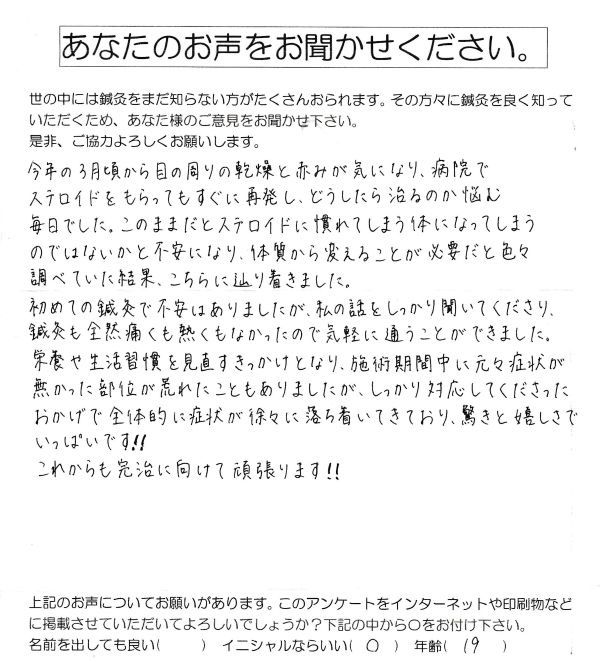 あなたのお声をお聞かせください。
世の中には鍼灸をまだ知らない方がたくさんおられます。その方々に鍼灸を良く知って
いただくため、あなた様のご意見をお聞かせ下さい。
是非、ご協力よろしくお願いします。
今年の3月頃から目の周りの乾燥と赤みが気になり、病院で
ステロイドをもらってもすぐに再発し、どうしたら治るのか悩む
毎日でした。このままだとステロイドに慣れてしまう体になってしまう
のではないかと不安になり、体質から変えることが必要だと色々
調べていた結果、こちらに辿り着きました。
初めての鍼灸で不安はありましたが、私の話をしっかり聞いてくださり、
鍼灸も全然痛くも熱くもなかったので気軽に通うことができました。
栄養や生活習慣を見直すきっかけとなり、施術期間中に元々症状が
無かった部位が荒れたこともありましたが、しっかり対応してくださった
おかげで全体的に症状が徐々に落ち着いてきており、驚きと嬉しさで
いっぱいです!!
これからも完治に向けて頑張ります!!
上記のお声についてお願いがあります。このアンケートをインターネットや印刷物など
に掲載させていただいてよろしいでしょうか?下記の中から○をお付け下さい。
名前を出しても良い(　　) イニシャルならいい( ○ ) 年齢( 19 )